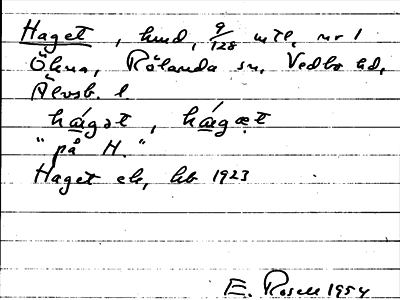 Haget, hmd, 9/128 mtl, nr 1
Öhna, Rölanda sn, Vedbo hd,
Älvsb. l.
hágət, hágæt
"på H."
Haget ek, kb 1923
E. Rosell 1954